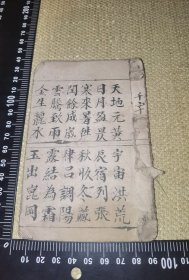 千字
天地元黃 宇宙洪荒
日月盈昃 辰宿列張
寒來暑往 秋收冬藏
閏餘成歲 律呂調陽
雲騰致雨 露結為霜
金生麗水 玉出崑岡